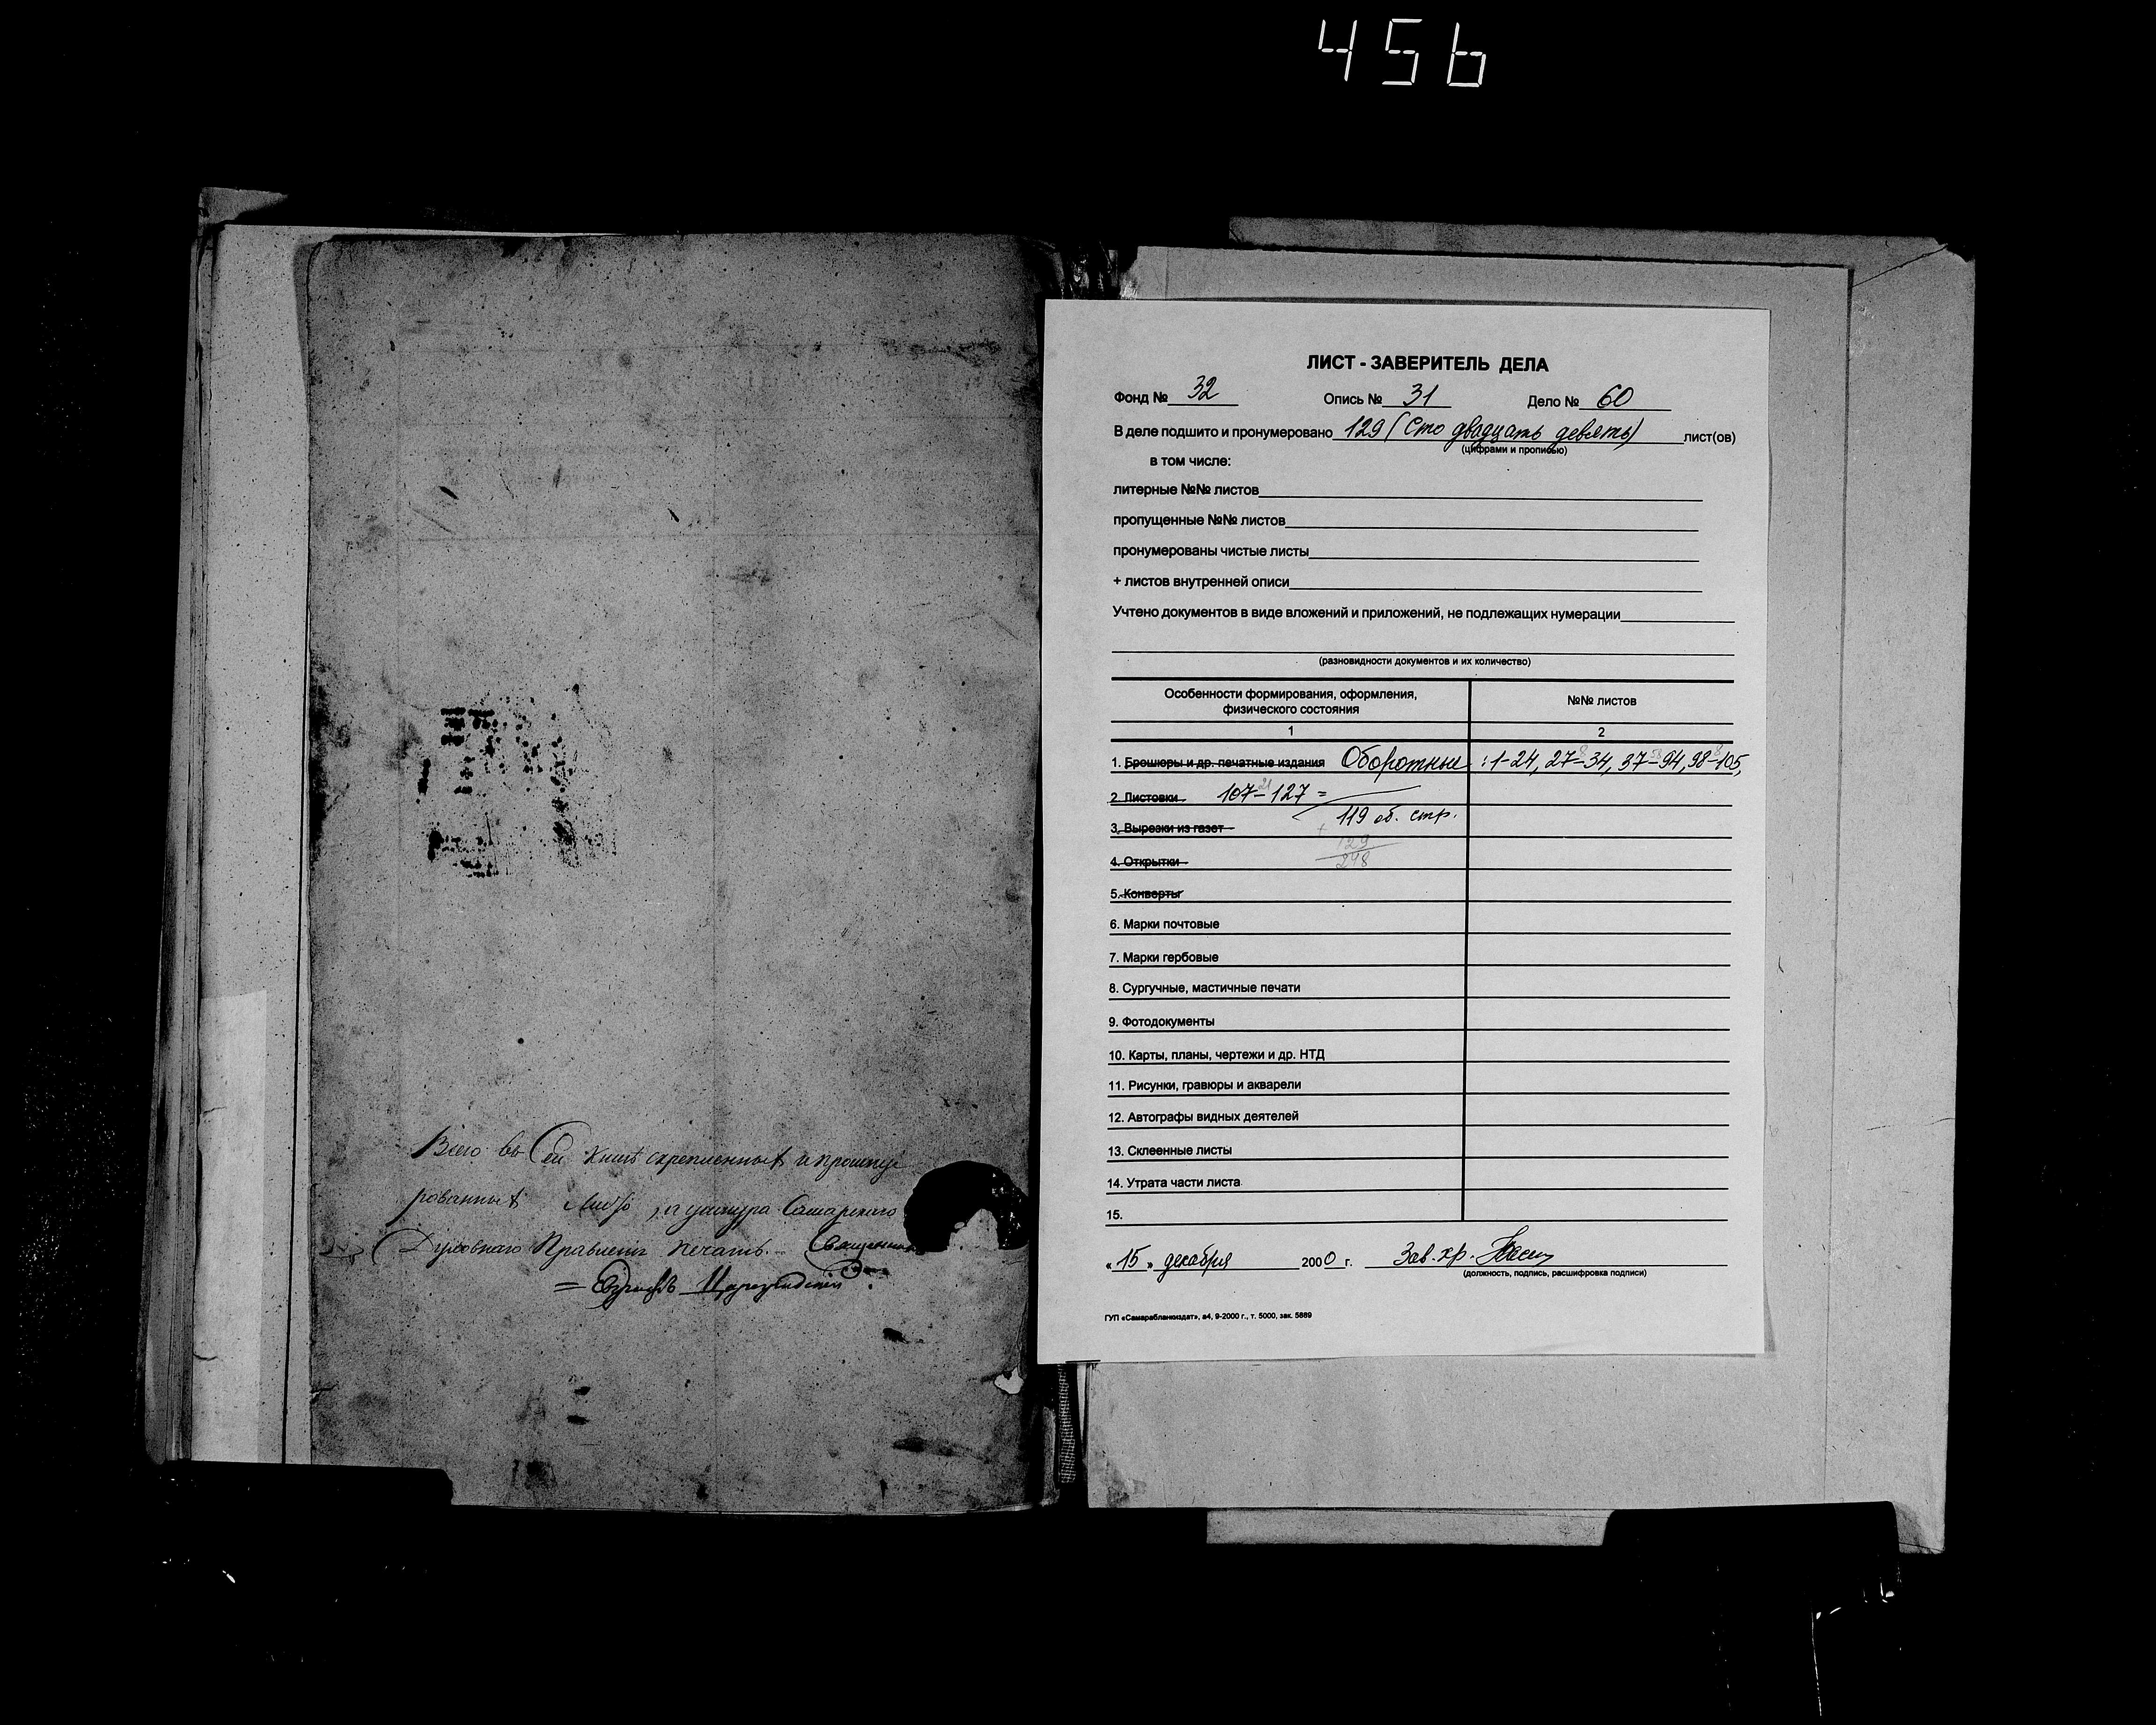 456
Всего въ Сей Книгѣ скрепленныхъ и прошнуро
рованныхъ
Самарского
Духовнаго Правленія печать. Священникъ
ЛИСТ - ЗАВЕРИТЕЛЬ ДЕЛА
Фонд № 32 Опись № 31 Дело № 60
В деле подшито и пронумеровано 129 (Сто двадцать девять) лист(ов)
(цифрами и прописью)
в том числе:
литерные №№ листов
пропущенные №№ листов
пронумерованы чистые листы
+ листов внутренней описи
Учтено документов в виде вложений и приложений, не подлежащих нумерации
(разновидности документов и их количество)
Особенности формирования, оформления, физического состояния №№ листов
1 2
1. Брошюры и др. печатные издания Оборотные: 1-24, 27-34, 37-94, 98-105,
2. Листовки 107-127 =
119 об. стр.
3. Вырезки из газет
129
4. Открытки 248
5. Конверты
6. Марки почтовые
7. Марки гербовые
8. Сургучные, мастичные печати
9. Фотодокументы
10. Карты, планы, чертежи и др. НТД
11. Рисунки, гравюры и акварели
12. Автографы видных деятелей
13. Склеенные листы
14. Утрата части листа
15.
«15» декабря 2000 г. Зав. хр.
(должность, подпись, расшифровка подписи)
ГУП «Самарабланкиздат», а4, 9-2000 г., т. 5000, зак. 5889